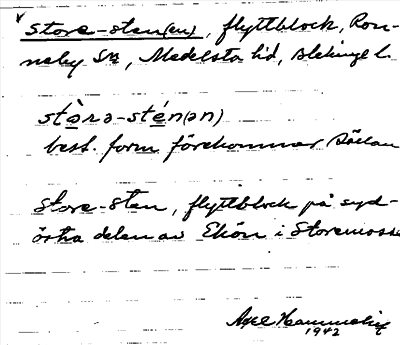 Store-sten(en), flyttblock, Ron-
neby Sn, Medelsta hd, Blekinge l.
stòrə-stén(ən)
best. form förekommer sällan
Store-sten, flyttblock på syd-
östra delen av Ekön i Storemosse
Axel
1942